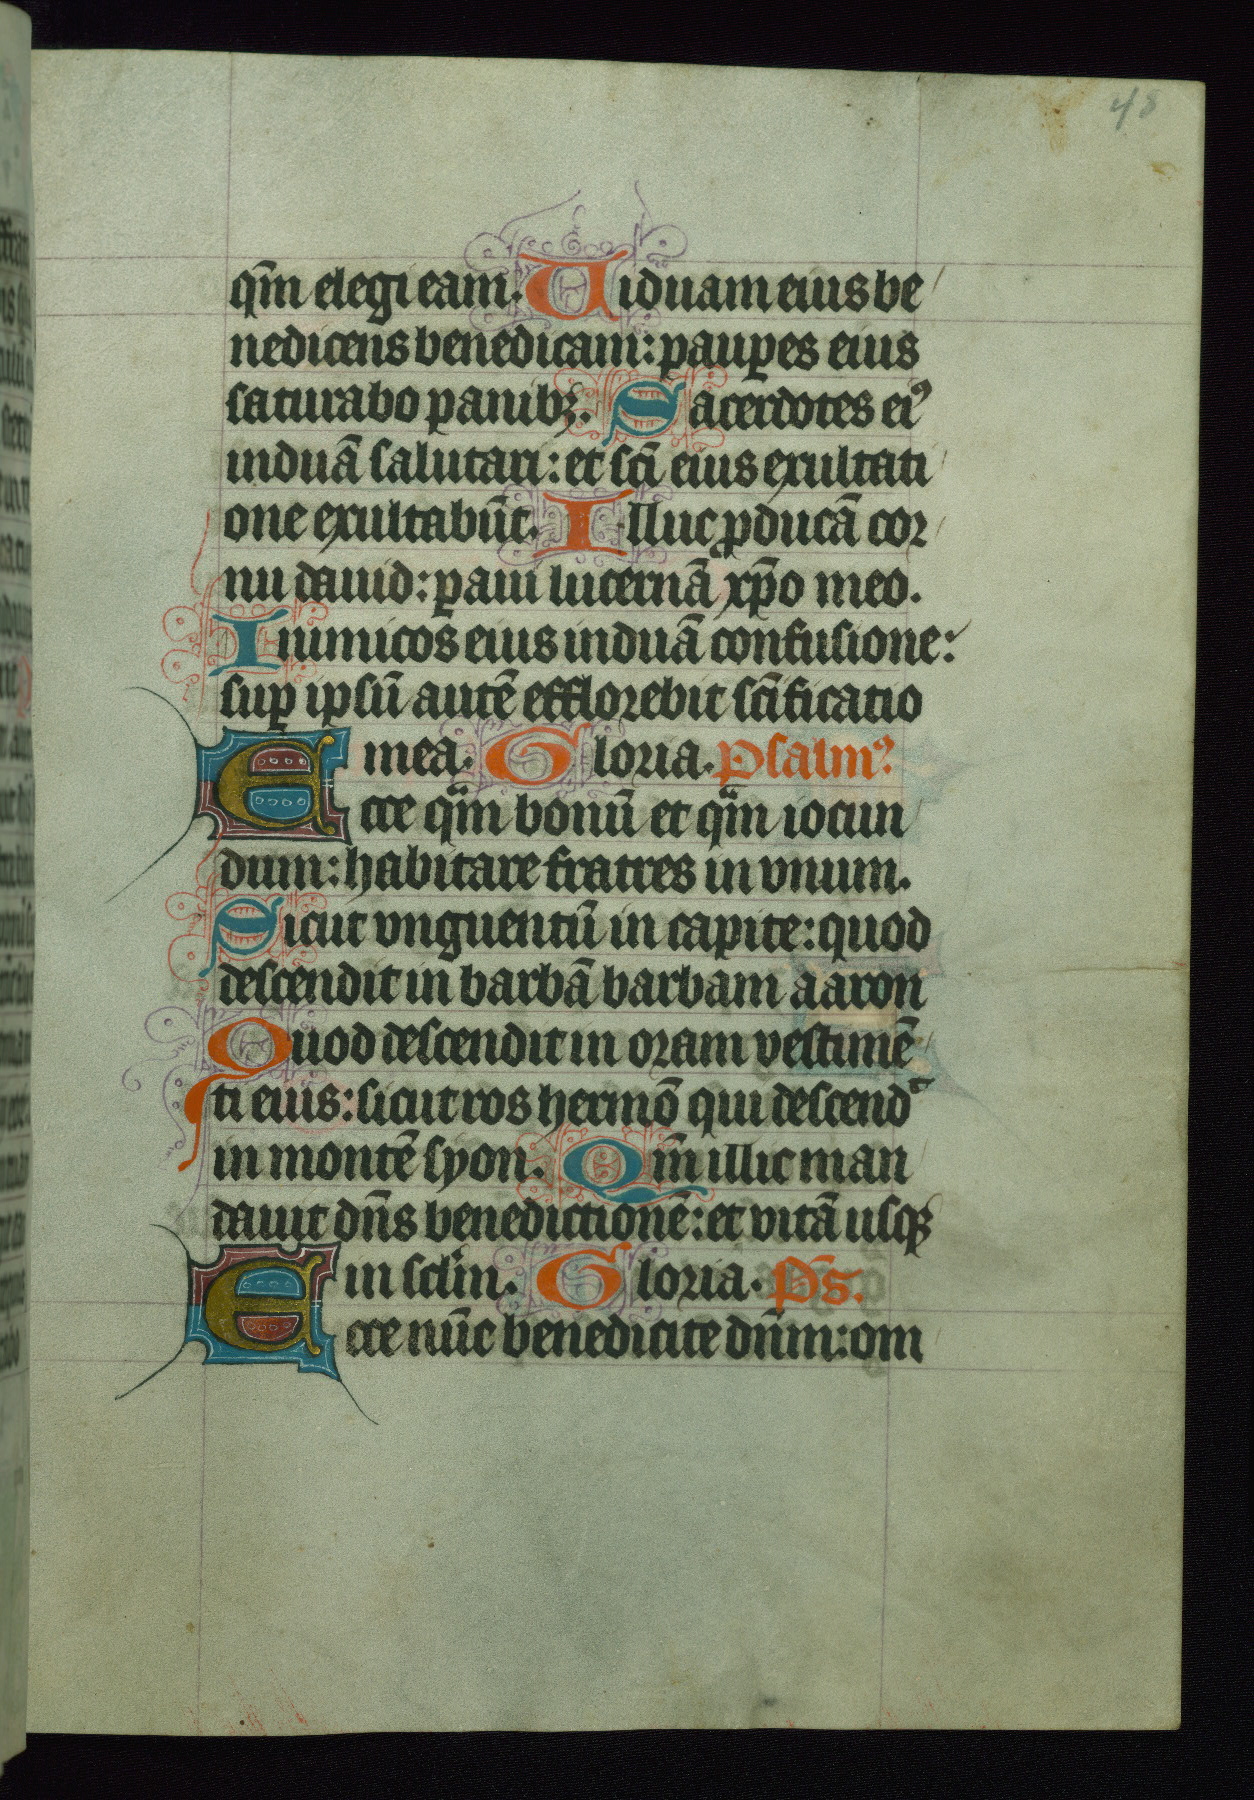 48
qm̄ elegi eam. Uiduam eius be
nedicens benedicam: paup̲es eius
saturabo panibꝫ. Sacerdotes eiꝰ
induā salutari: et sc̄i eius exultati
one exultabūt. Illuc ꝓducā cor
nu dauid: paui lucernā xp̄o meo.
Inimicos eius induā confusione:
suꝑ ipsū autē efflorebit sc̄ificatio
mea. Gloria. Psalmꝰ
Ecce qͣm bonū et qͣm iocun
dum: habitare fratres in vnum.
Sicut vnguentū in capite: quod
descendit in barbā barbam aaron
Quod descendit in oram vestimē
ti eius: sicut ros hermō qui descendᵗ
in montē syon. Qm̄ illic man
dauit dn̄s benedictionē: et vitā usqꝫ
in sclm̄. Gloria. Ps̄.
Ecce nūc benedicite dn̄m: om